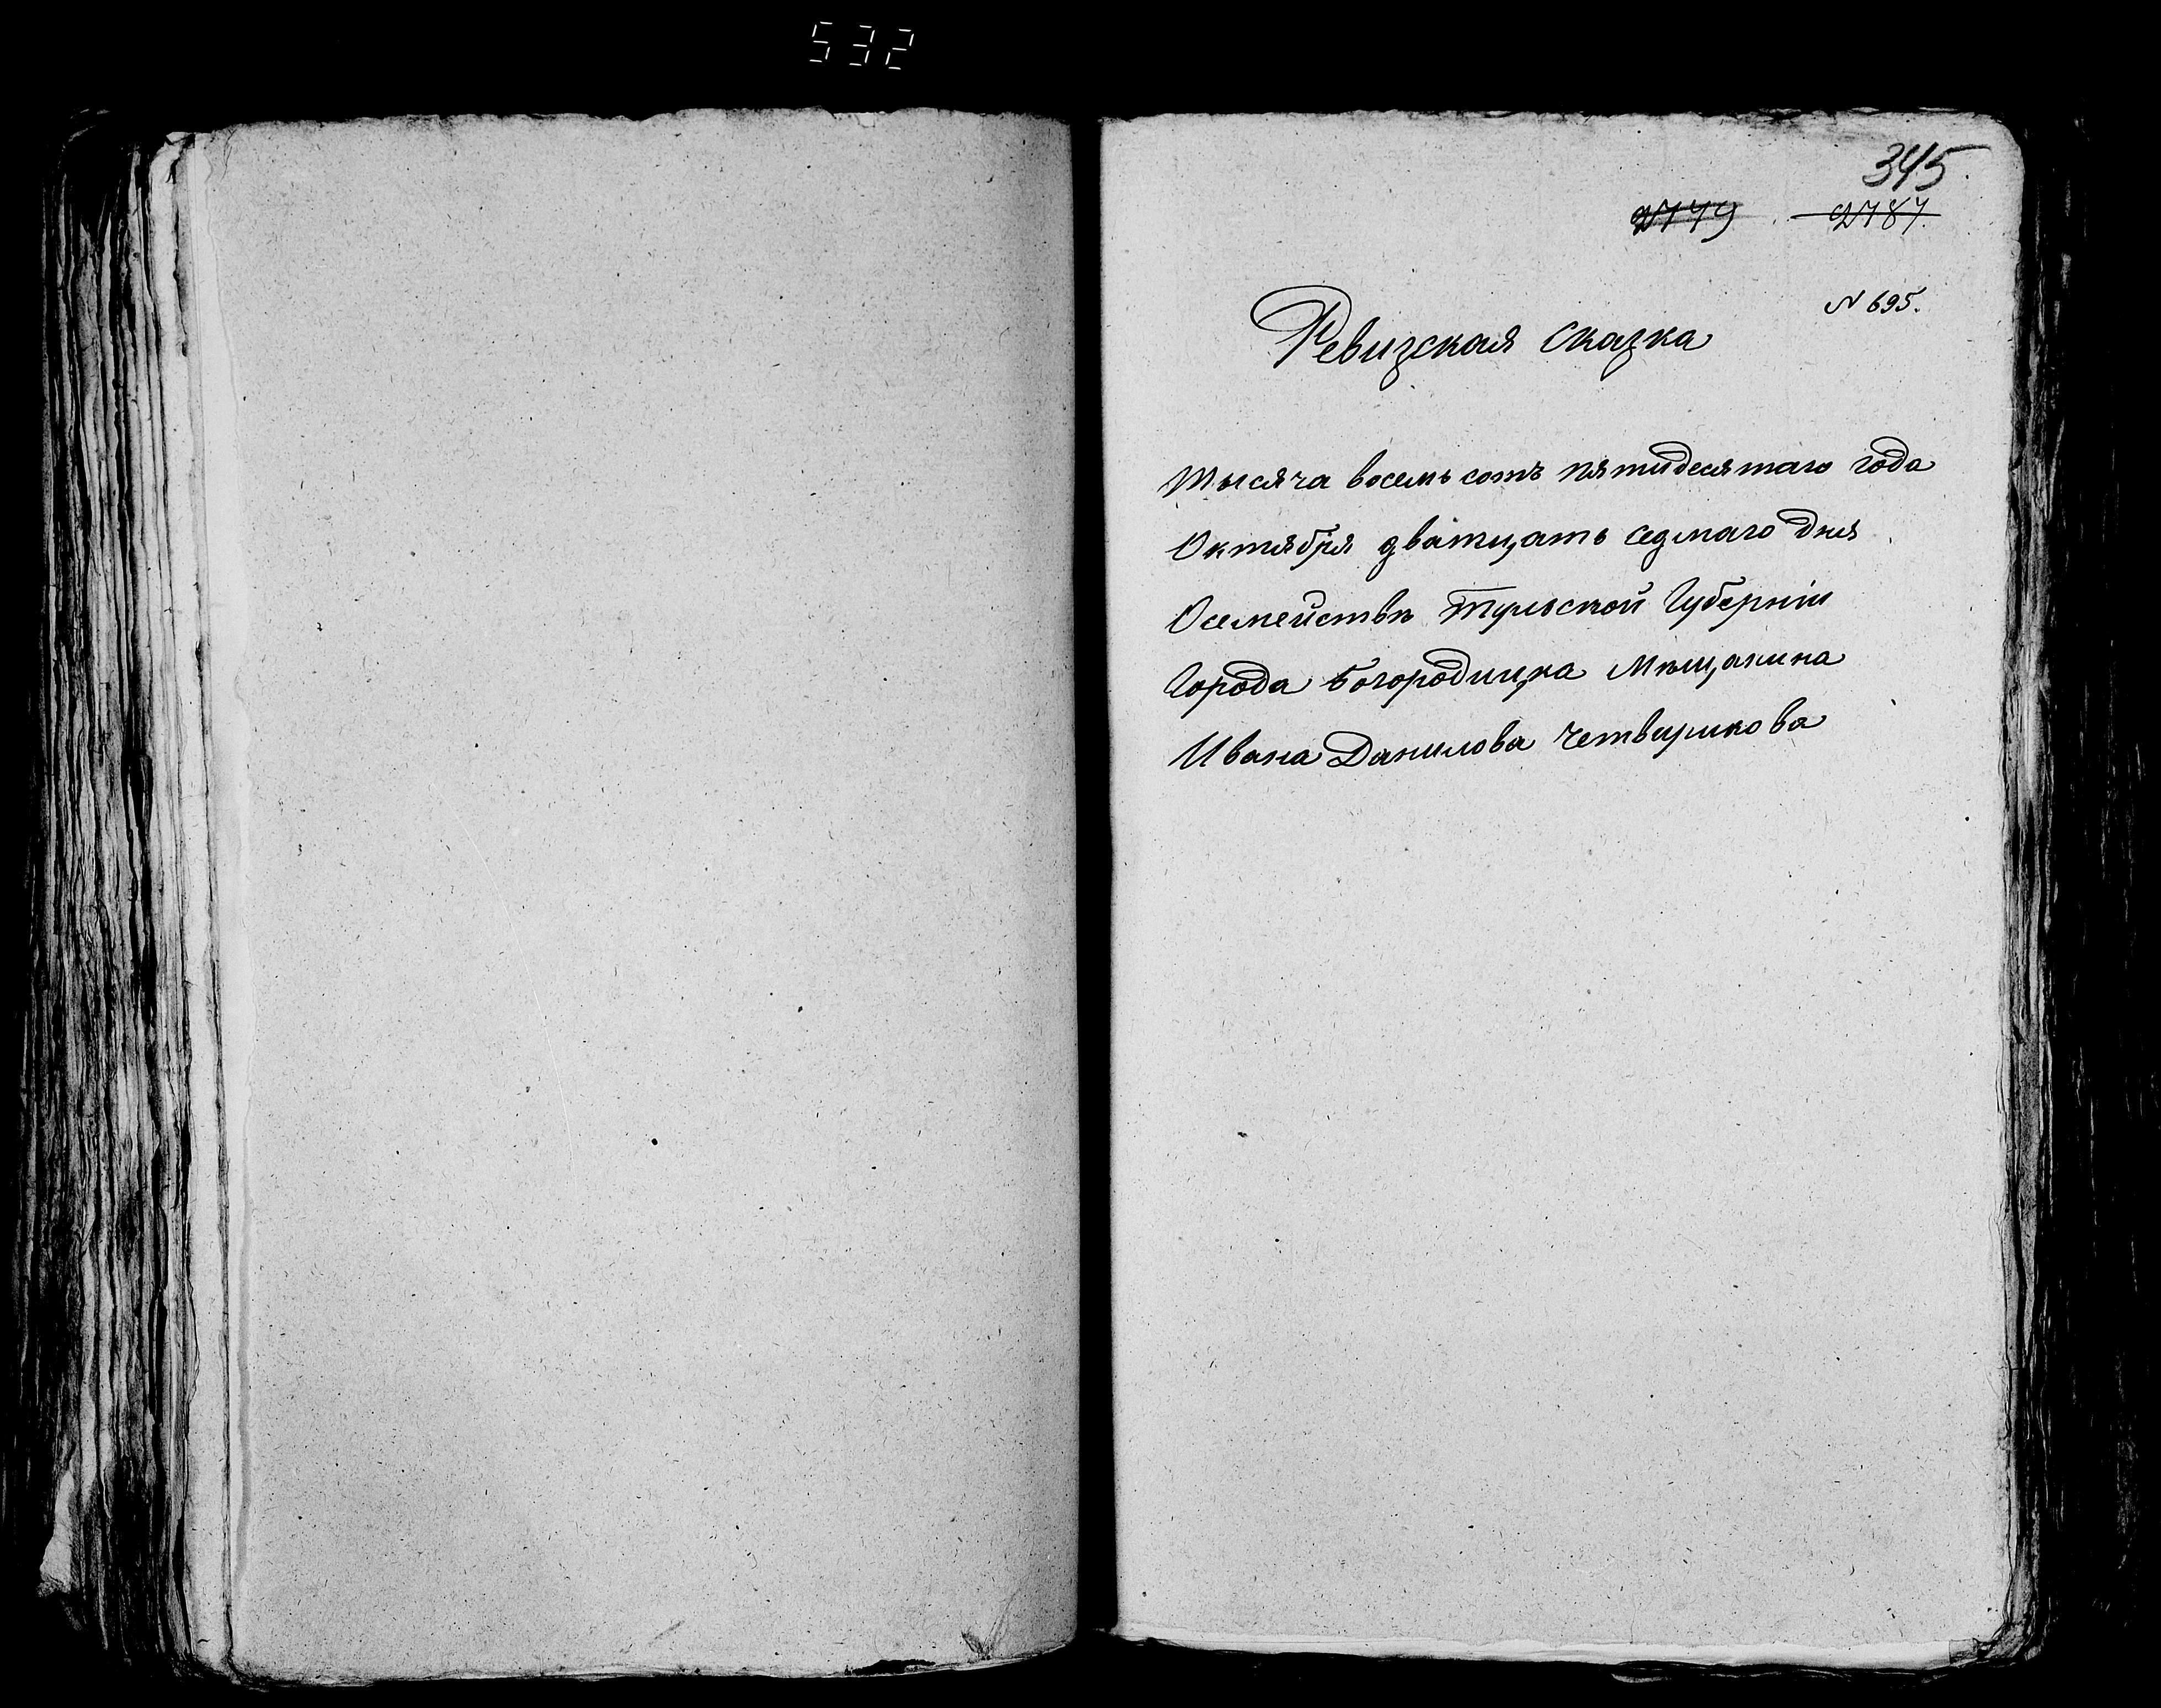 532
345.
2779 2787.
N 695.
Ревизская сказка
Тысяча восемь сотъ пятидесятаго года
Октября дватцать седмаго дня
Осемействѣ Тульской Губерніи
Города Богородицка Мѣщанина
Ивана Данилова Четверикова